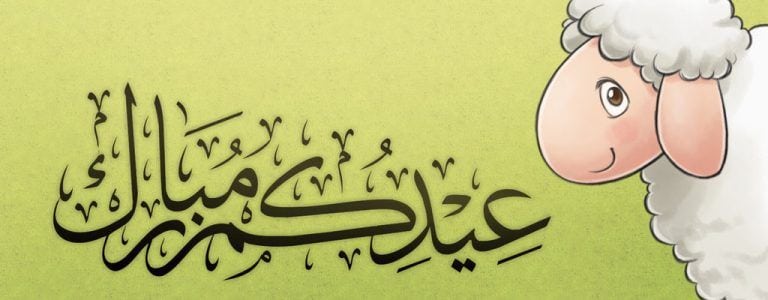 عِيْدِكُم مُبَارَك